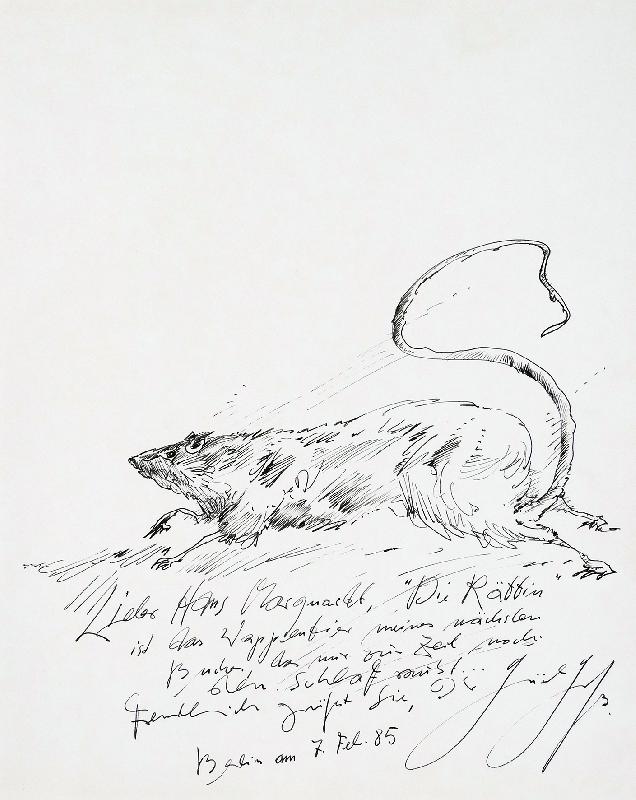 Lieber Hans Marquardt, "Die Rättin"
ist das Wappentier meines nächsten
Buches, das mir zur Zeit noch
den Schlaf raubt...
Freundlich grüßt Sie, Ihr Günter Grass
Berlin am 7. Feb. 85